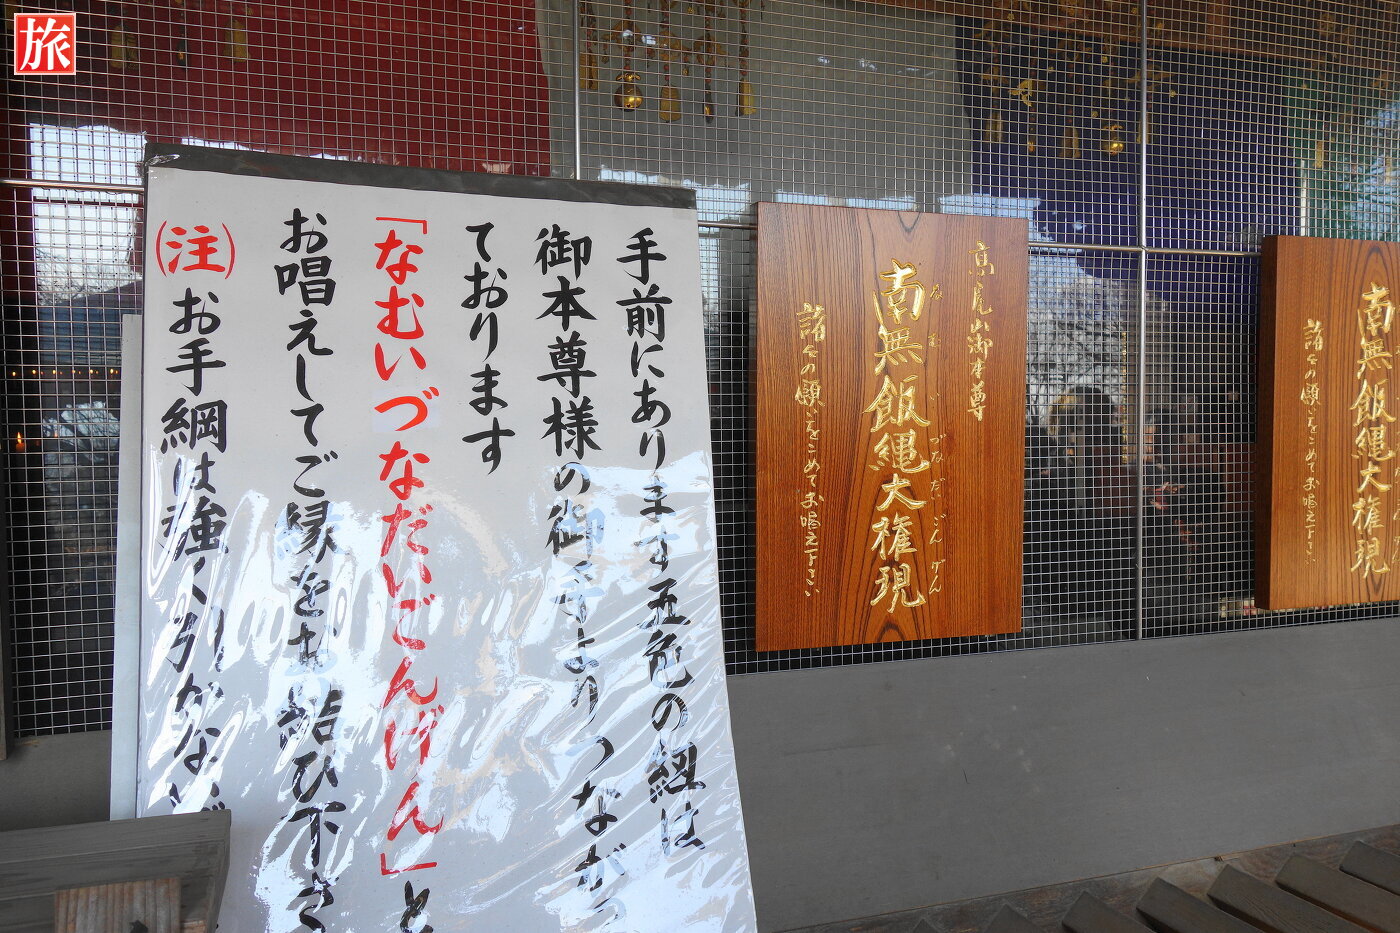 旅
手前にあります五色の紐は
御本尊様の御手よりつながっ
ております
「なむいづなだいごんげん」と
お唱えしてご縁をお結び下さ
(注)お手綱は強く引かないで
高尾山御本尊
南無飯縄大権現
なむいづなだいごんげん
諸々の願いをこめてお唱え下さい
南無飯縄大権現
諸々の願いをこめてお唱え下さい